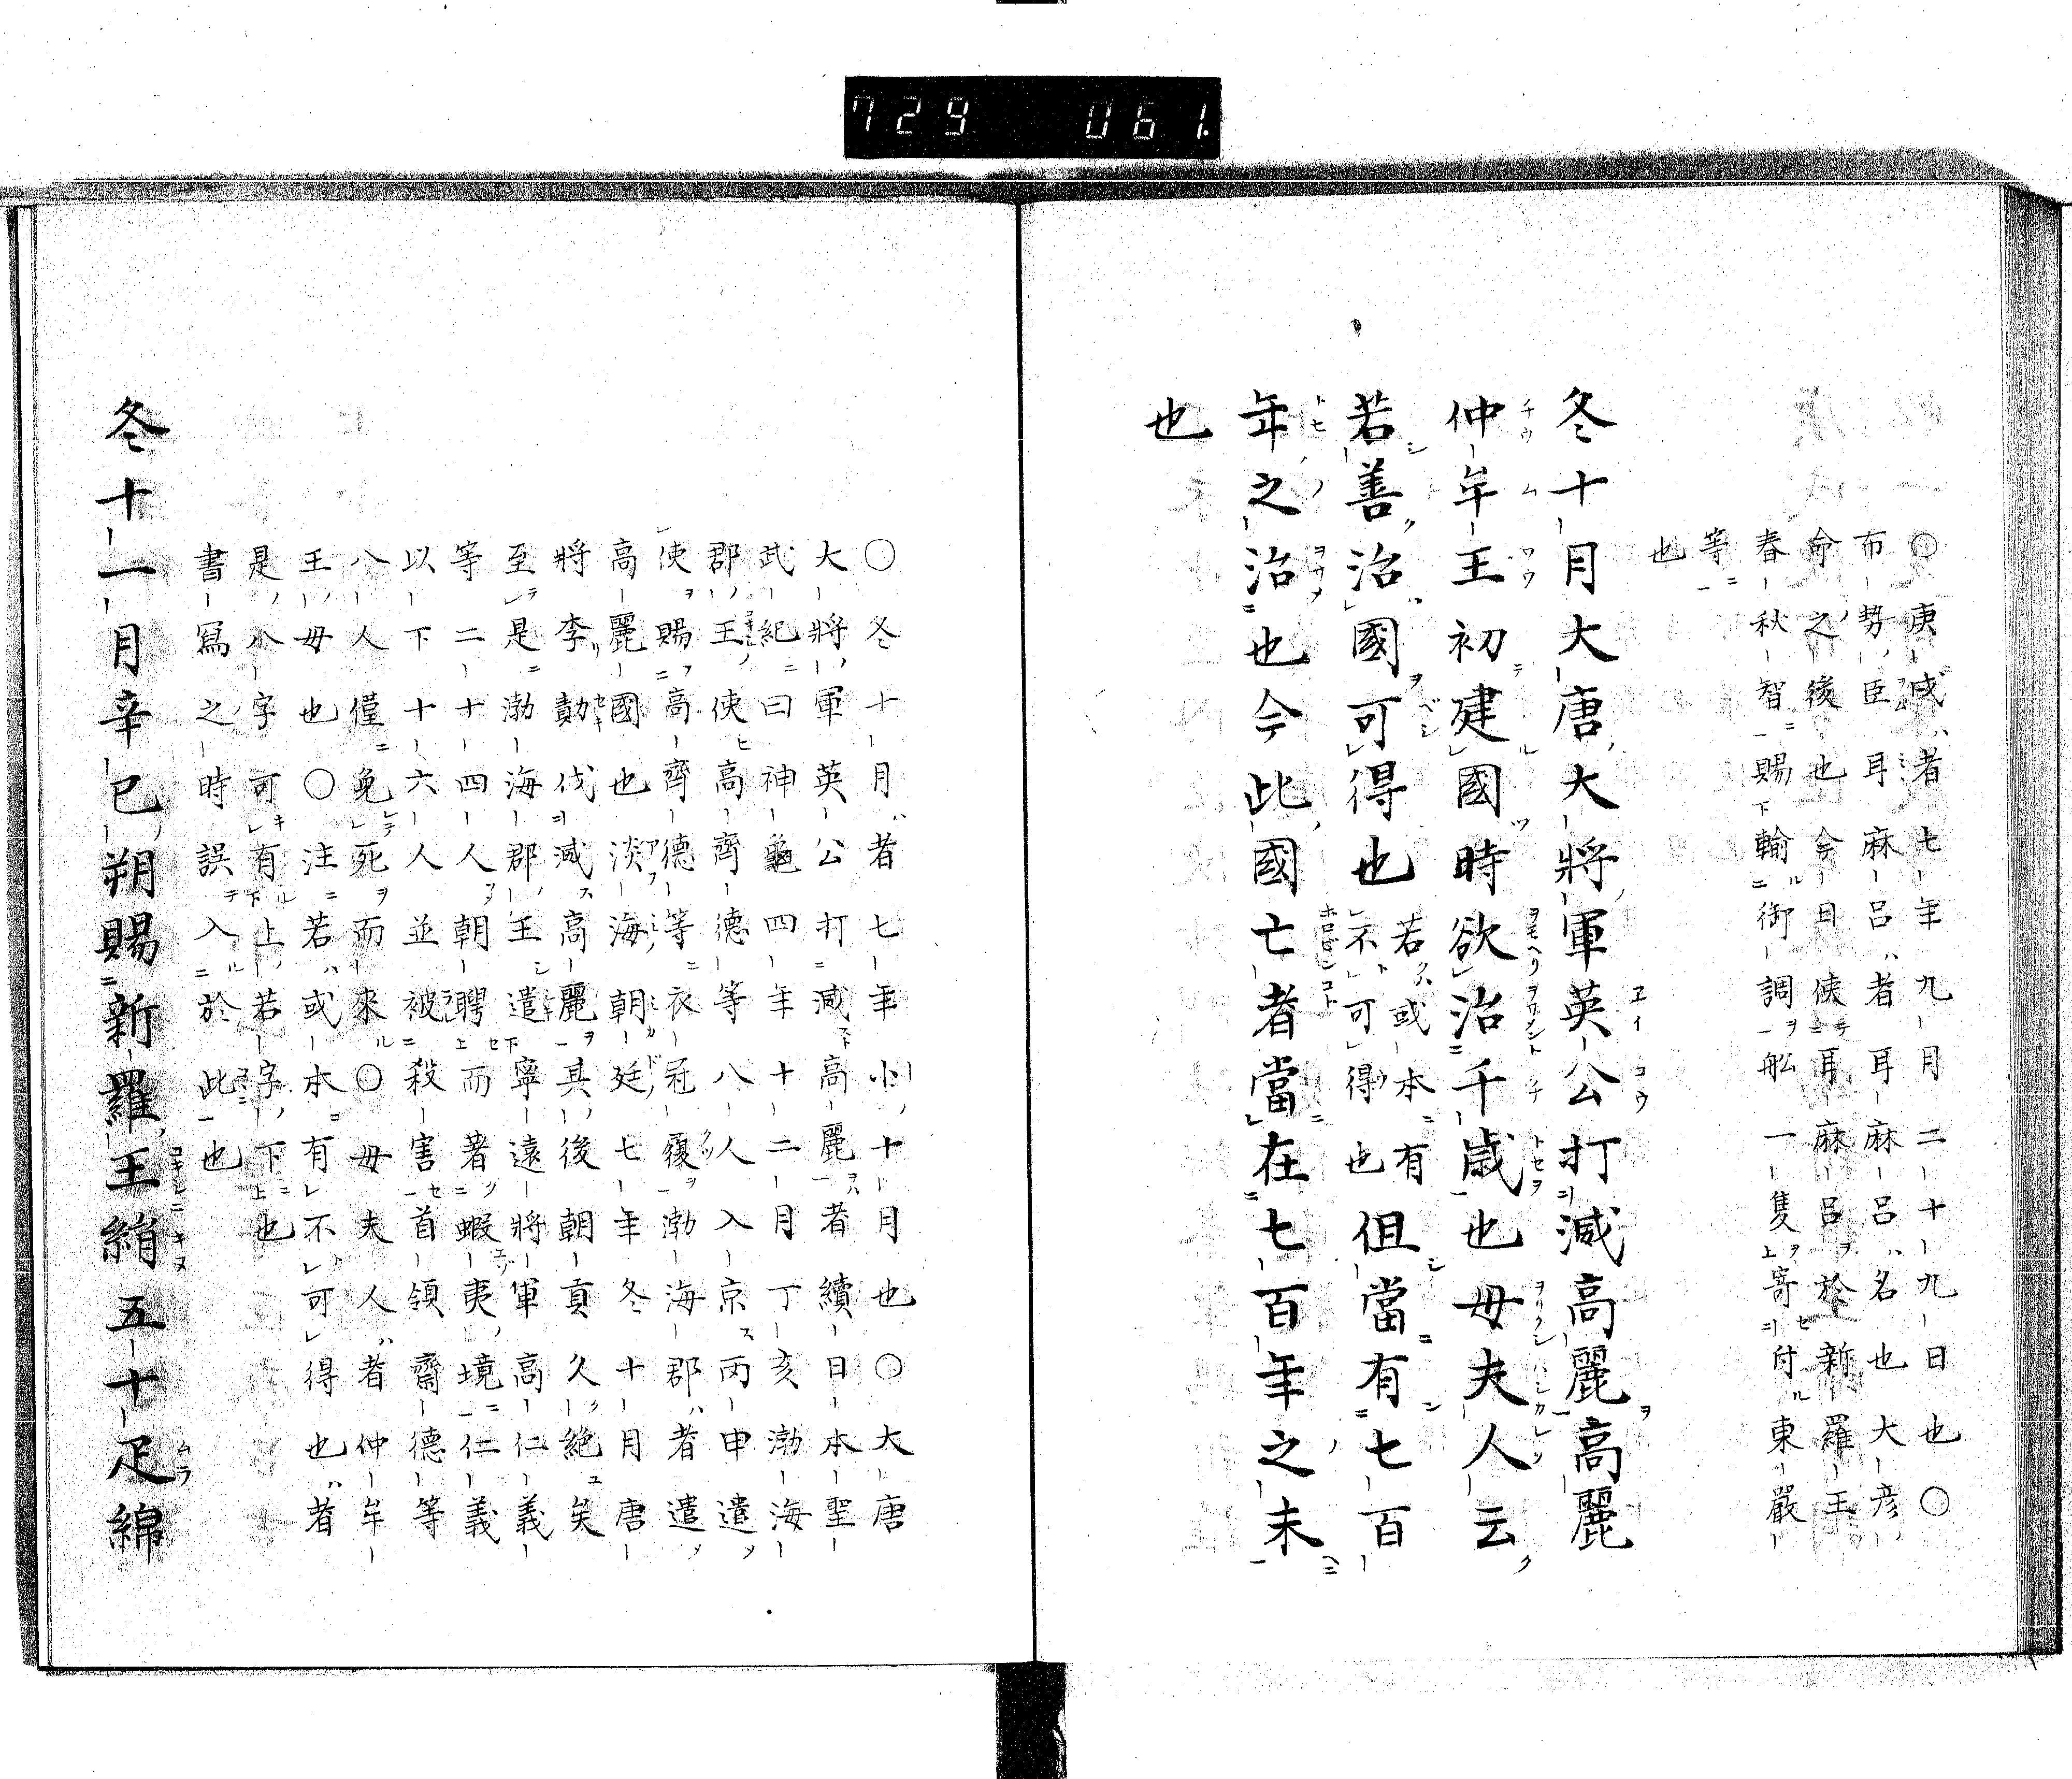 729 061.
○庚戌者七年九月二十九日也○
布勢臣耳麻呂者耳麻呂名也大彦
命之後也今日使耳麻呂於新羅王
春秋智賜輸御調舩一隻寄付東嚴
等
也
冬十月大唐大將軍英公打滅高麗高麗
仲牟王初建國時欲治千歳也毋夫人云
若善治國可得也若或本有
不可得也但當有七百
年之治也今此國亡者當在七百年之末
也
○冬十月者七年小十月也○大唐
大將軍英公打滅高麗者續日本聖
武紀曰神龜四年十二月丁亥渤海
郡王使高齊德等八人入京丙申遣
使賜高齊德等衣冠履渤海郡者遣
高麗國也淡海朝廷七年冬十月唐
將李勣伐滅高麗其後朝貢久絶矣
至是渤海郡王遣寧遠將軍高仁義
等二十四人朝聘而著蝦夷境仁義
以下十六人並被殺害首領齋德等
八人僅免死而來○毋夫人者仲牟
王毋也○注若或本有不可得也者
是八字可有上若字下也
書寫之時誤入於此也
冬十一月辛巳朔賜新羅王絹五十疋綿